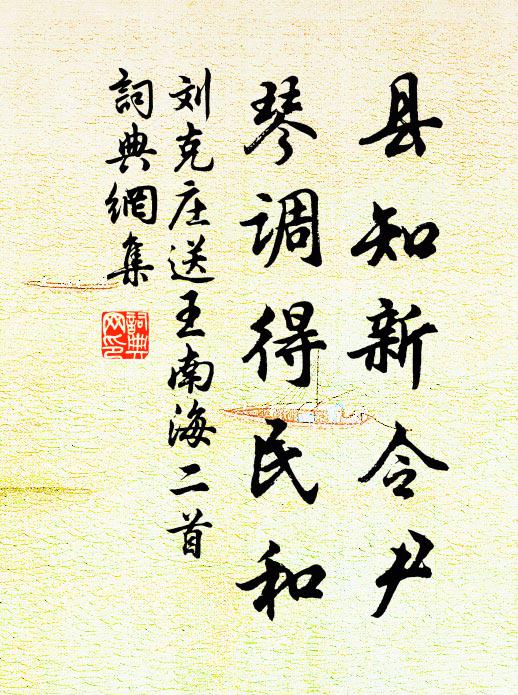 县知新令尹
琴调得民和
刘克庄送王南海二首
詞典網集
詞典
网印